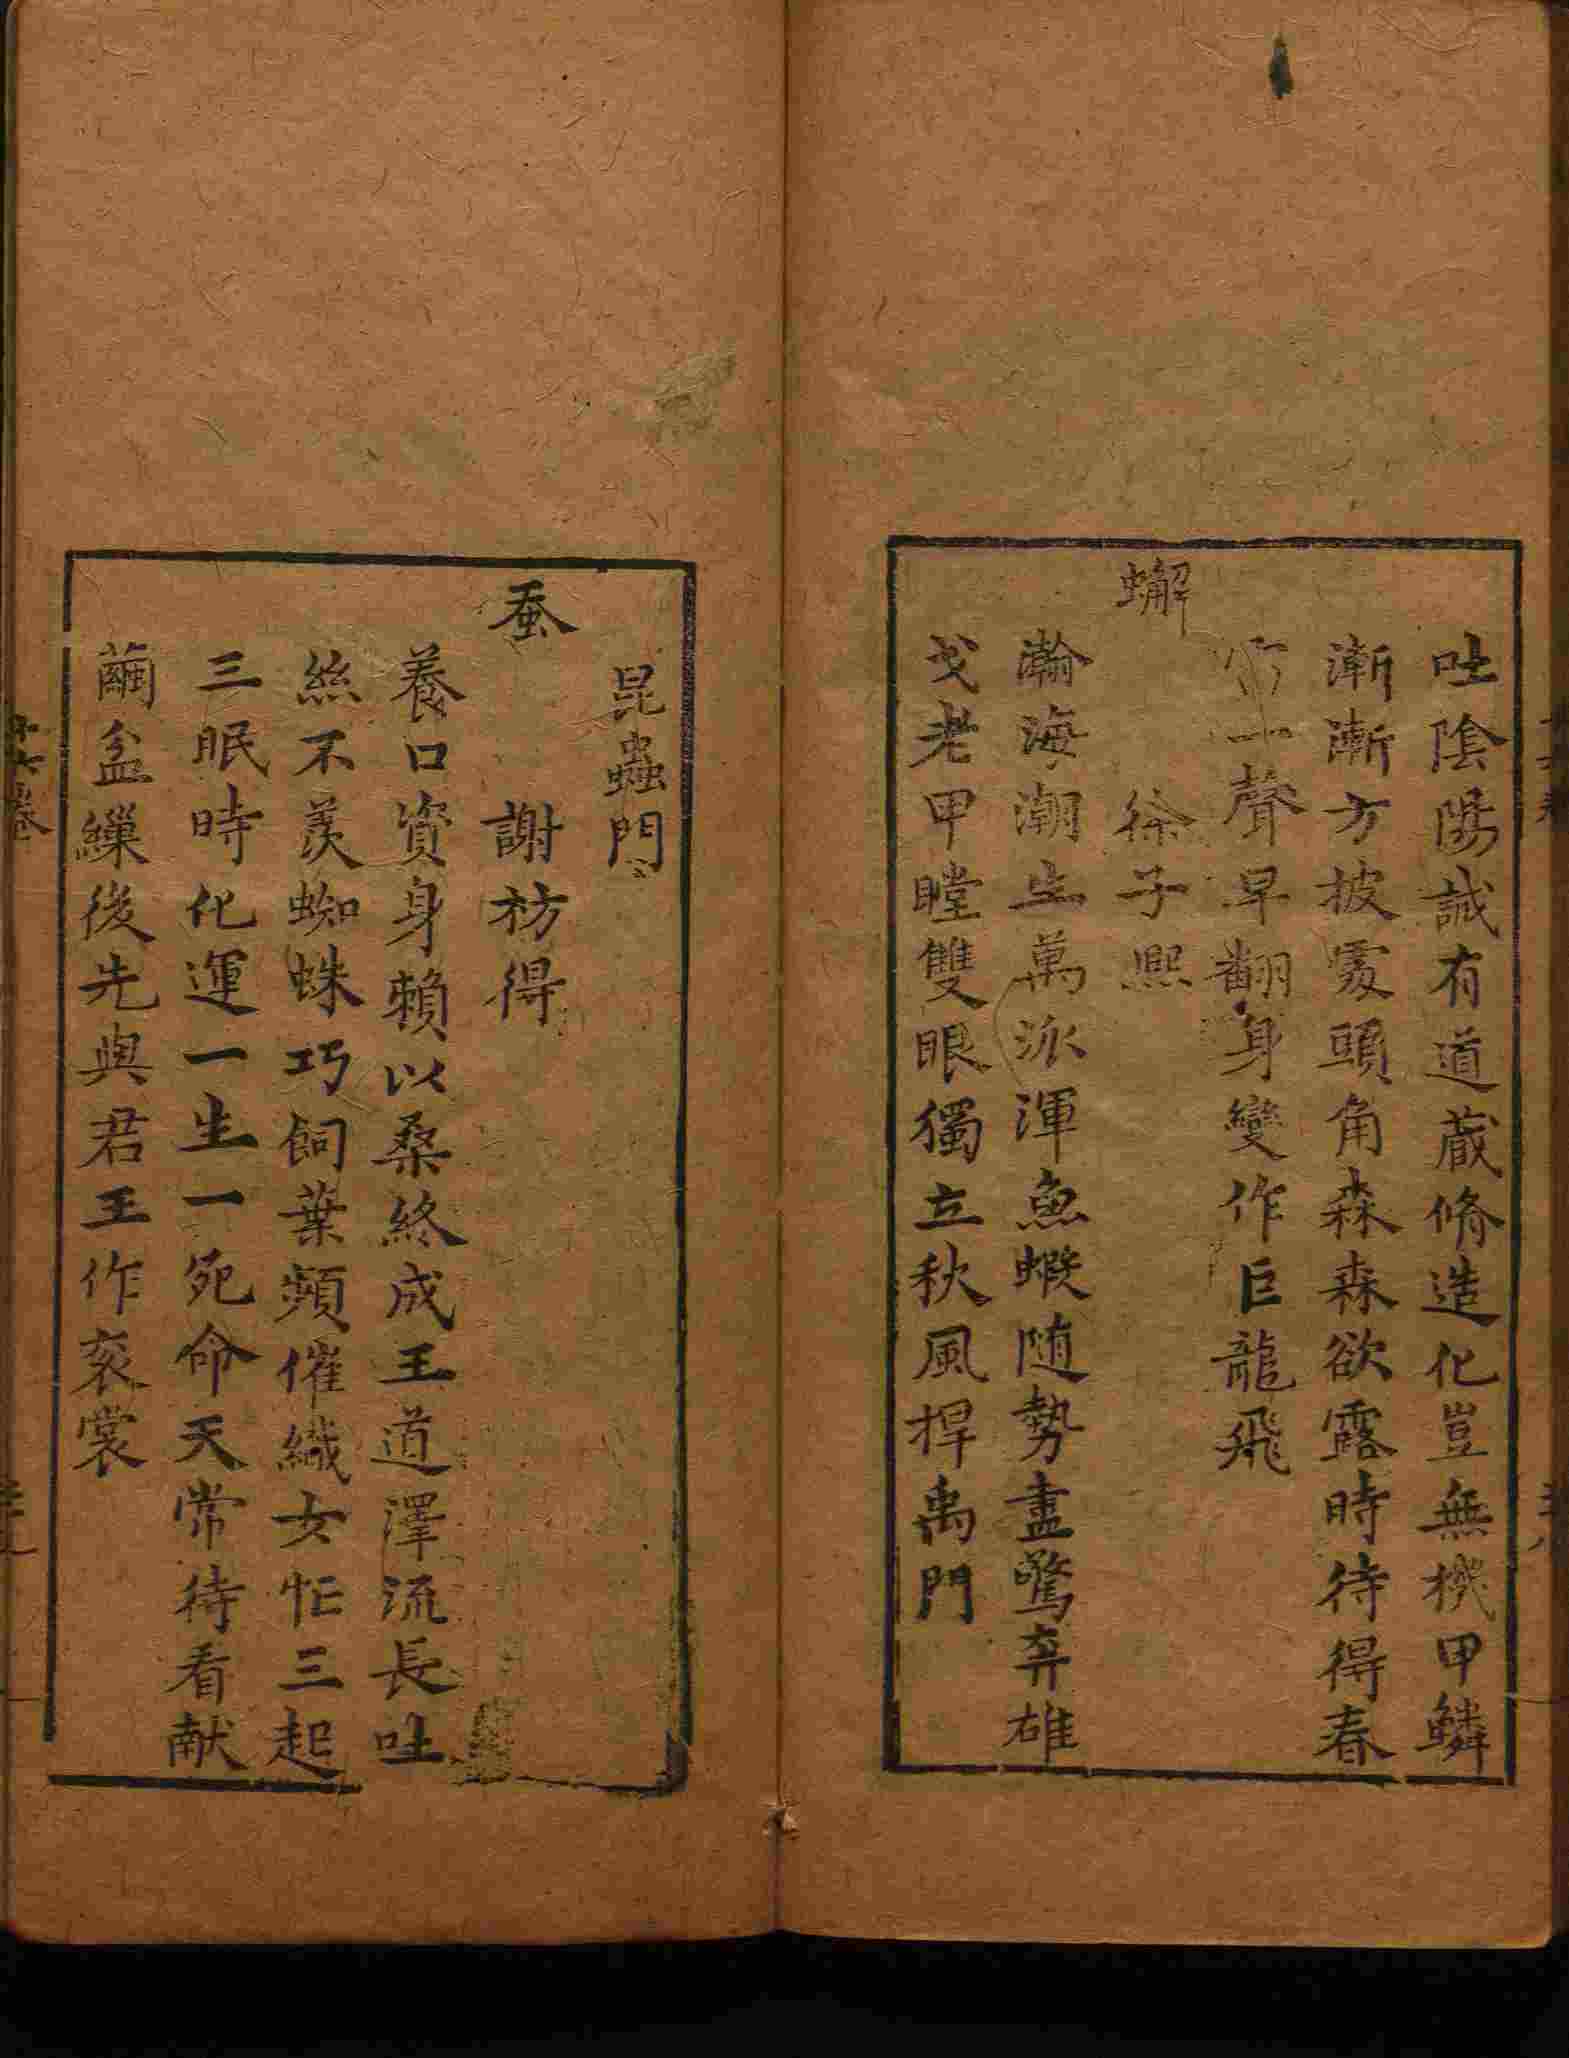 吐陰陽誠有道蔵脩造化豈無機甲鱗
漸漸方披霧頭角森森欲露時待得春
一聲早翻身變作巨龍飛
蠏
徐子熙
瀚海潮生萬派渾魚蝦随勢盡驚奔雄
戈老甲瞠雙眼獨立秋風捍禹門
昆蟲門
蚕
謝枋得
養口資身賴以桑終成王道澤流長吐
絲不羨蜘蛛巧飼葉頻催織女忙三起
三眠時化運一生一宛命天常待看献
繭盆繅後先與君王作衮裳